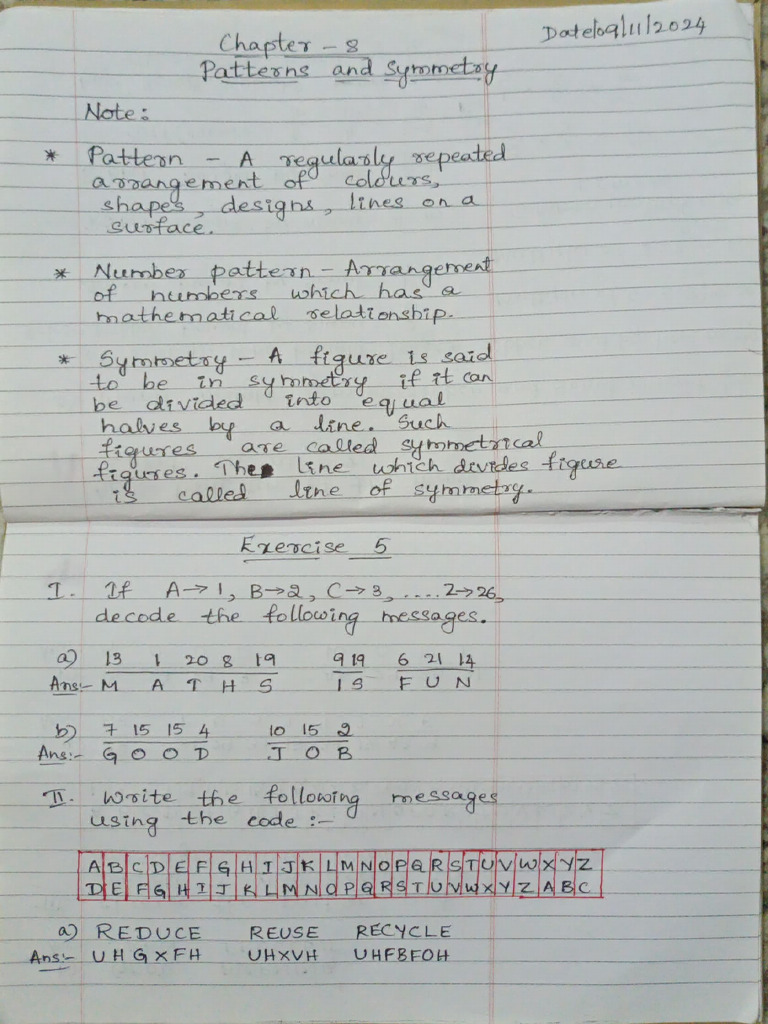 Date/09/11/2024
Chapter - 8
Patterns and Symmetry
Note:
* Pattern - A regularly repeated
arrangement of colours,
shapes, designs, lines on a
surface.
* Number pattern - Arrangement
of numbers which has a
mathematical relationship.
* Symmetry - A figure is said
to be in symmetry if it can
be divided into equal
halves by a line. Such
figures are called symmetrical
figures. The line which divides figure
is called line of symmetry.
Exercise 5
I. If A→1, B→2, C→3, ....Z→26,
decode the following messages.
a) 13 1 20 8 19 9 19 6 21 14
Ans:- M A T H S I S F U N
b) 7 15 15 4 10 15 2
Ans:- G O O D J O B
II. Write the following messages
using the code :-
A B C D E F G H I J K L M N O P Q R S T U V W X Y Z
D E F G H I J K L M N O P Q R S T U V W X Y Z A B C
a) REDUCE REUSE RECYCLE
Ans:- UHGXFH UHXVH UHFBFOH